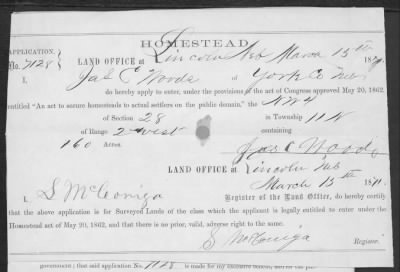 HOMESTEAD.
APPLICATION.
No. 7128
LAND OFFICE at Lincoln Neb March 15th 1871.
I, Jas C Woods of York Co Neb
do hereby apply to enter, under the provisions of the act of Congress approved May 20, 1862,
entitled "An act to secure homesteads to actual settlers on the public domain," the NW4
of Section 28 in Township 11 N
of Range 2 west containing
160 Acres.
Jas C Woods
LAND OFFICE at Lincoln Neb
March 15th 1871.
I, S McConiga Register of the Land Office, do hereby certify
that the above application is for Surveyed Lands of the class which the applicant is legally entitled to enter under the
Homestead act of May 20, 1862, and that there is no prior, valid, adverse right to the same.
S McConiga
Register.
government; that said application No. 7128 is made for my exclusive benefit, and for the